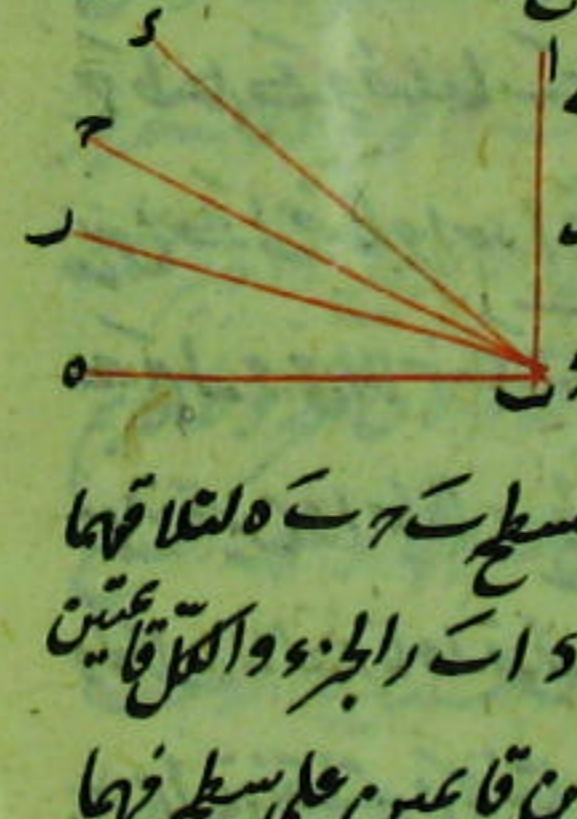 ا
ء
ح
ر
ه
ب
سطح ب ح ب ه لتلاقيهما
ا ب ر الجزء والكل قائمتين
قائمين على سطح فهما